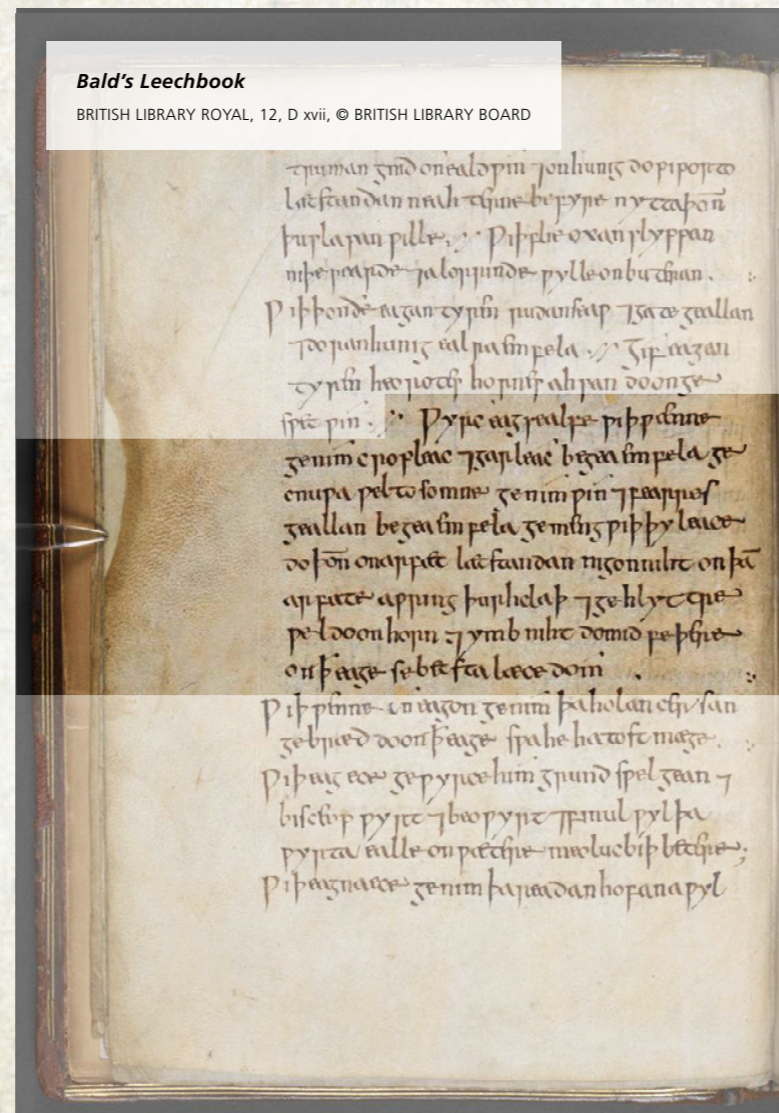 Bald's Leechbook
BRITISH LIBRARY ROYAL, 12, D xvii, © BRITISH LIBRARY BOARD
on eald ƿin ⁊ on hunig do pipor to
læt standan neahterne
þu slapan ƿille. Ƿiþ oxan slyppan
niþeƿearde ⁊ alorrinde ƿylle on buteran.
Ƿiþ þon ðe eagan tyren rudan seaƿ ⁊ gate geallan
⁊ doran hunig ealra emfela. Gif eagan
tyren heorotes hornes ahsan do on ge
sƿet ƿin. Ƿyrc eagsealfe ƿiþ ƿænne
genim cropleac ⁊ garleac begea emfela ge
cnuƿa ƿel tosomne genim ƿin ⁊ fearres
geallan begea emfela gemeng ƿiþ þy leace
do þoñ on arfæt læt standan nigon niht on þā
arfæte aƿring þurh claþ ⁊ gehlyttre
ƿel do on horn ⁊ ymb niht do mid feþre
on þ eage se betsta læcedom.
Ƿiþ ƿænne on eagon genim þa holan cersan
gebræd do on þ eage sƿa he hatost mæge.
Ƿiþ eagece geƿyrce him grundsƿelgean ⁊
bisceopƿyrt ⁊ beoƿyrt ⁊ finul ƿyl þa
ƿyrta ealle on ƿætere meoluc biþ betere;
Ƿiþ eagna ece genim þa readan hofan aƿyl